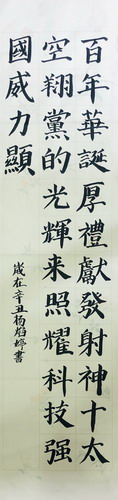 百年華誕厚禮獻發射神十太
空翔黨的光輝来照耀科技强
國威力顯
歲在辛丑杨婷書